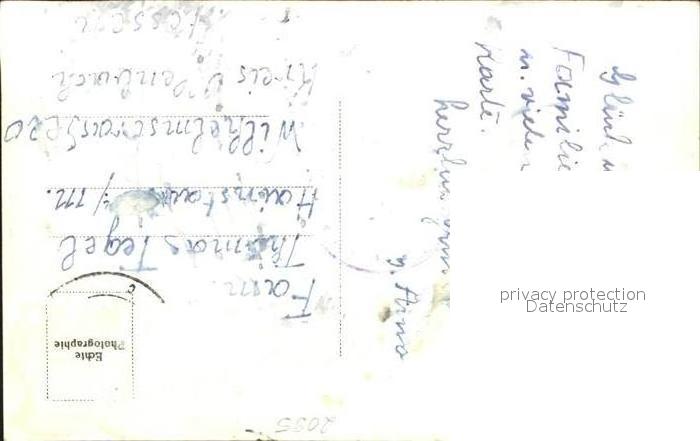 Fam.
Thomas Tegel
Hainstadt a/m.
Wilhelmstraße 20
Kreis Offenbach
Hessen
Glück u
Familie
u. vielen
Karte.
herzlich
Echte
Photographie
2055
privacy protection
Datenschutz